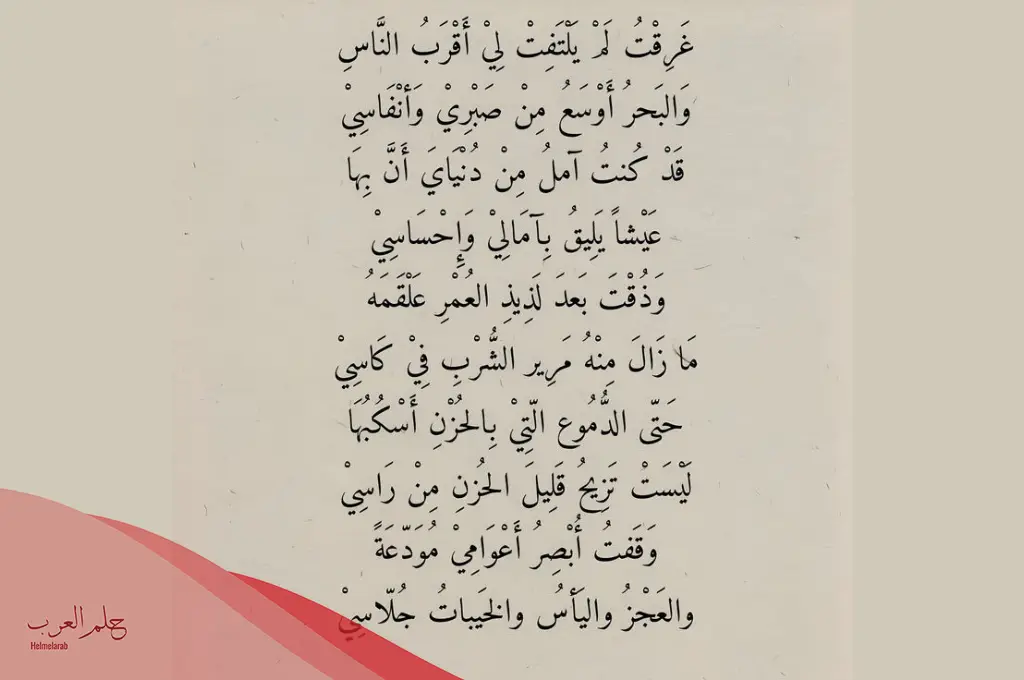 غَرِقْتُ لَمْ يَلْتَفِتْ لِيْ أَقْرَبُ النَّاسِ
وَالبَحرُ أَوْسَعُ مِنْ صَبْرِيْ وَأَنْفَاسِيْ
قَدْ كُنتُ آملُ مِنْ دُنْيَايَ أَنَّ بِهَا
عَيْشاً يَلِيقُ بِآمَالِيْ وَإِحْسَاسِيْ
وَذُقْتَ بَعدَ لَذِيذِ العُمْرِ عَلْقَمَهُ
مَا زَالَ مِنْهُ مَرِير الشُّرْبِ فِيْ كَاسِيْ
حَتّى الدُّمُوع الّتِيْ بِالحُزْنِ أَسْكُبُهَا
لَيْسَتْ تَزِيحُ قَلِيلَ الحُزنِ مِنْ رَاسِيْ
وَقَفتُ أُبْصِرُ أَعْوَامِيْ مُوَدّعَةً
والعَجْزُ واليَأسُ والخَيباتُ جُلّاسِيْ
حلم العرب
Helmelarab